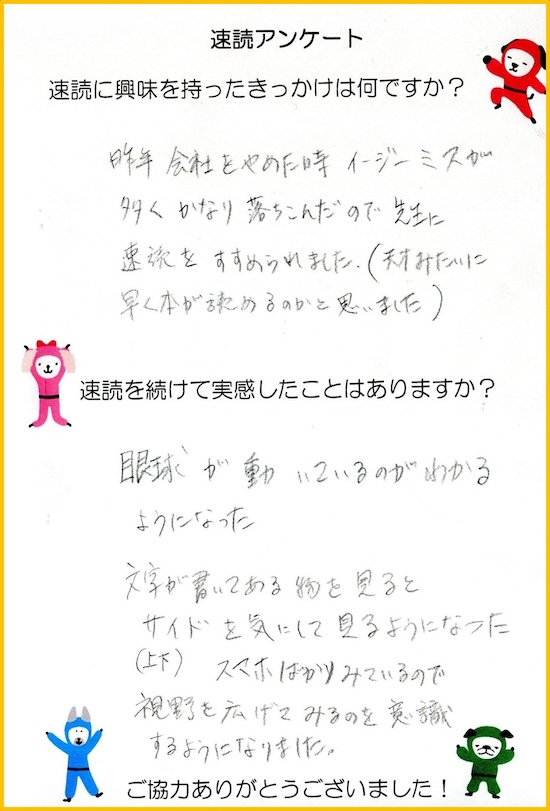 速読アンケート
速読に興味を持ったきっかけは何ですか？
昨年 会社をやめた時 イージーミスが
多く かなり落ちこんだので 先生に
速読を すすめられました。(天才みたいに
早く本が読めるのかと思いました)
速読を続けて実感したことはありますか？
眼球が動いているのがわかる
ようになった
文字が書いてある物を見ると
サイドを気にして見るようになった
(上下) スマホばかりみているので
視野を広げてみるのを意識
するようになりました。
ご協力ありがとうございました！